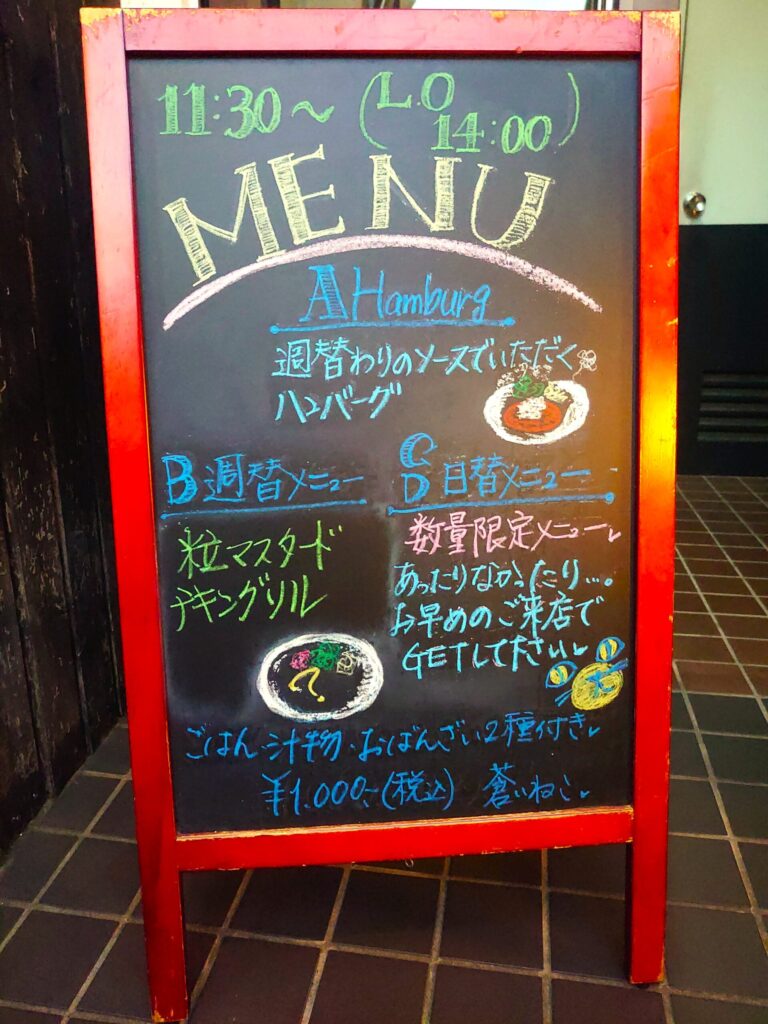 11:30～(L.O 14:00)
MENU
A Hamburg
週替わりのソースでいただく
ハンバーグ
B 週替メニュー
粒マスタード
チキングリル
C
D 日替メニュー
数量限定メニュー
あったりなかったり...。
お早めのご来店で
GETしてださい
ごはん・汁物・おばんざい2種付き
¥1.000-(税込) 蒼いねこ